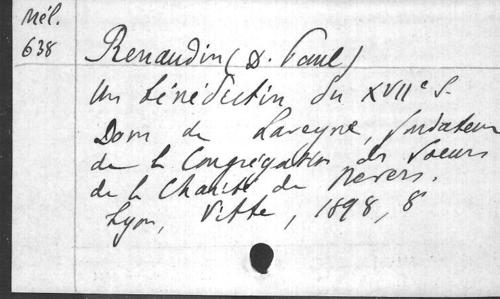 Mél.
638
Renaudin (D. Paul)
Un bénédictin du XVIIe s.
Dom de Laveyne, fondateur
de la Congrégation des Soeurs
de la Charité de Nevers.
Lyon, Vitte, 1898, 8°